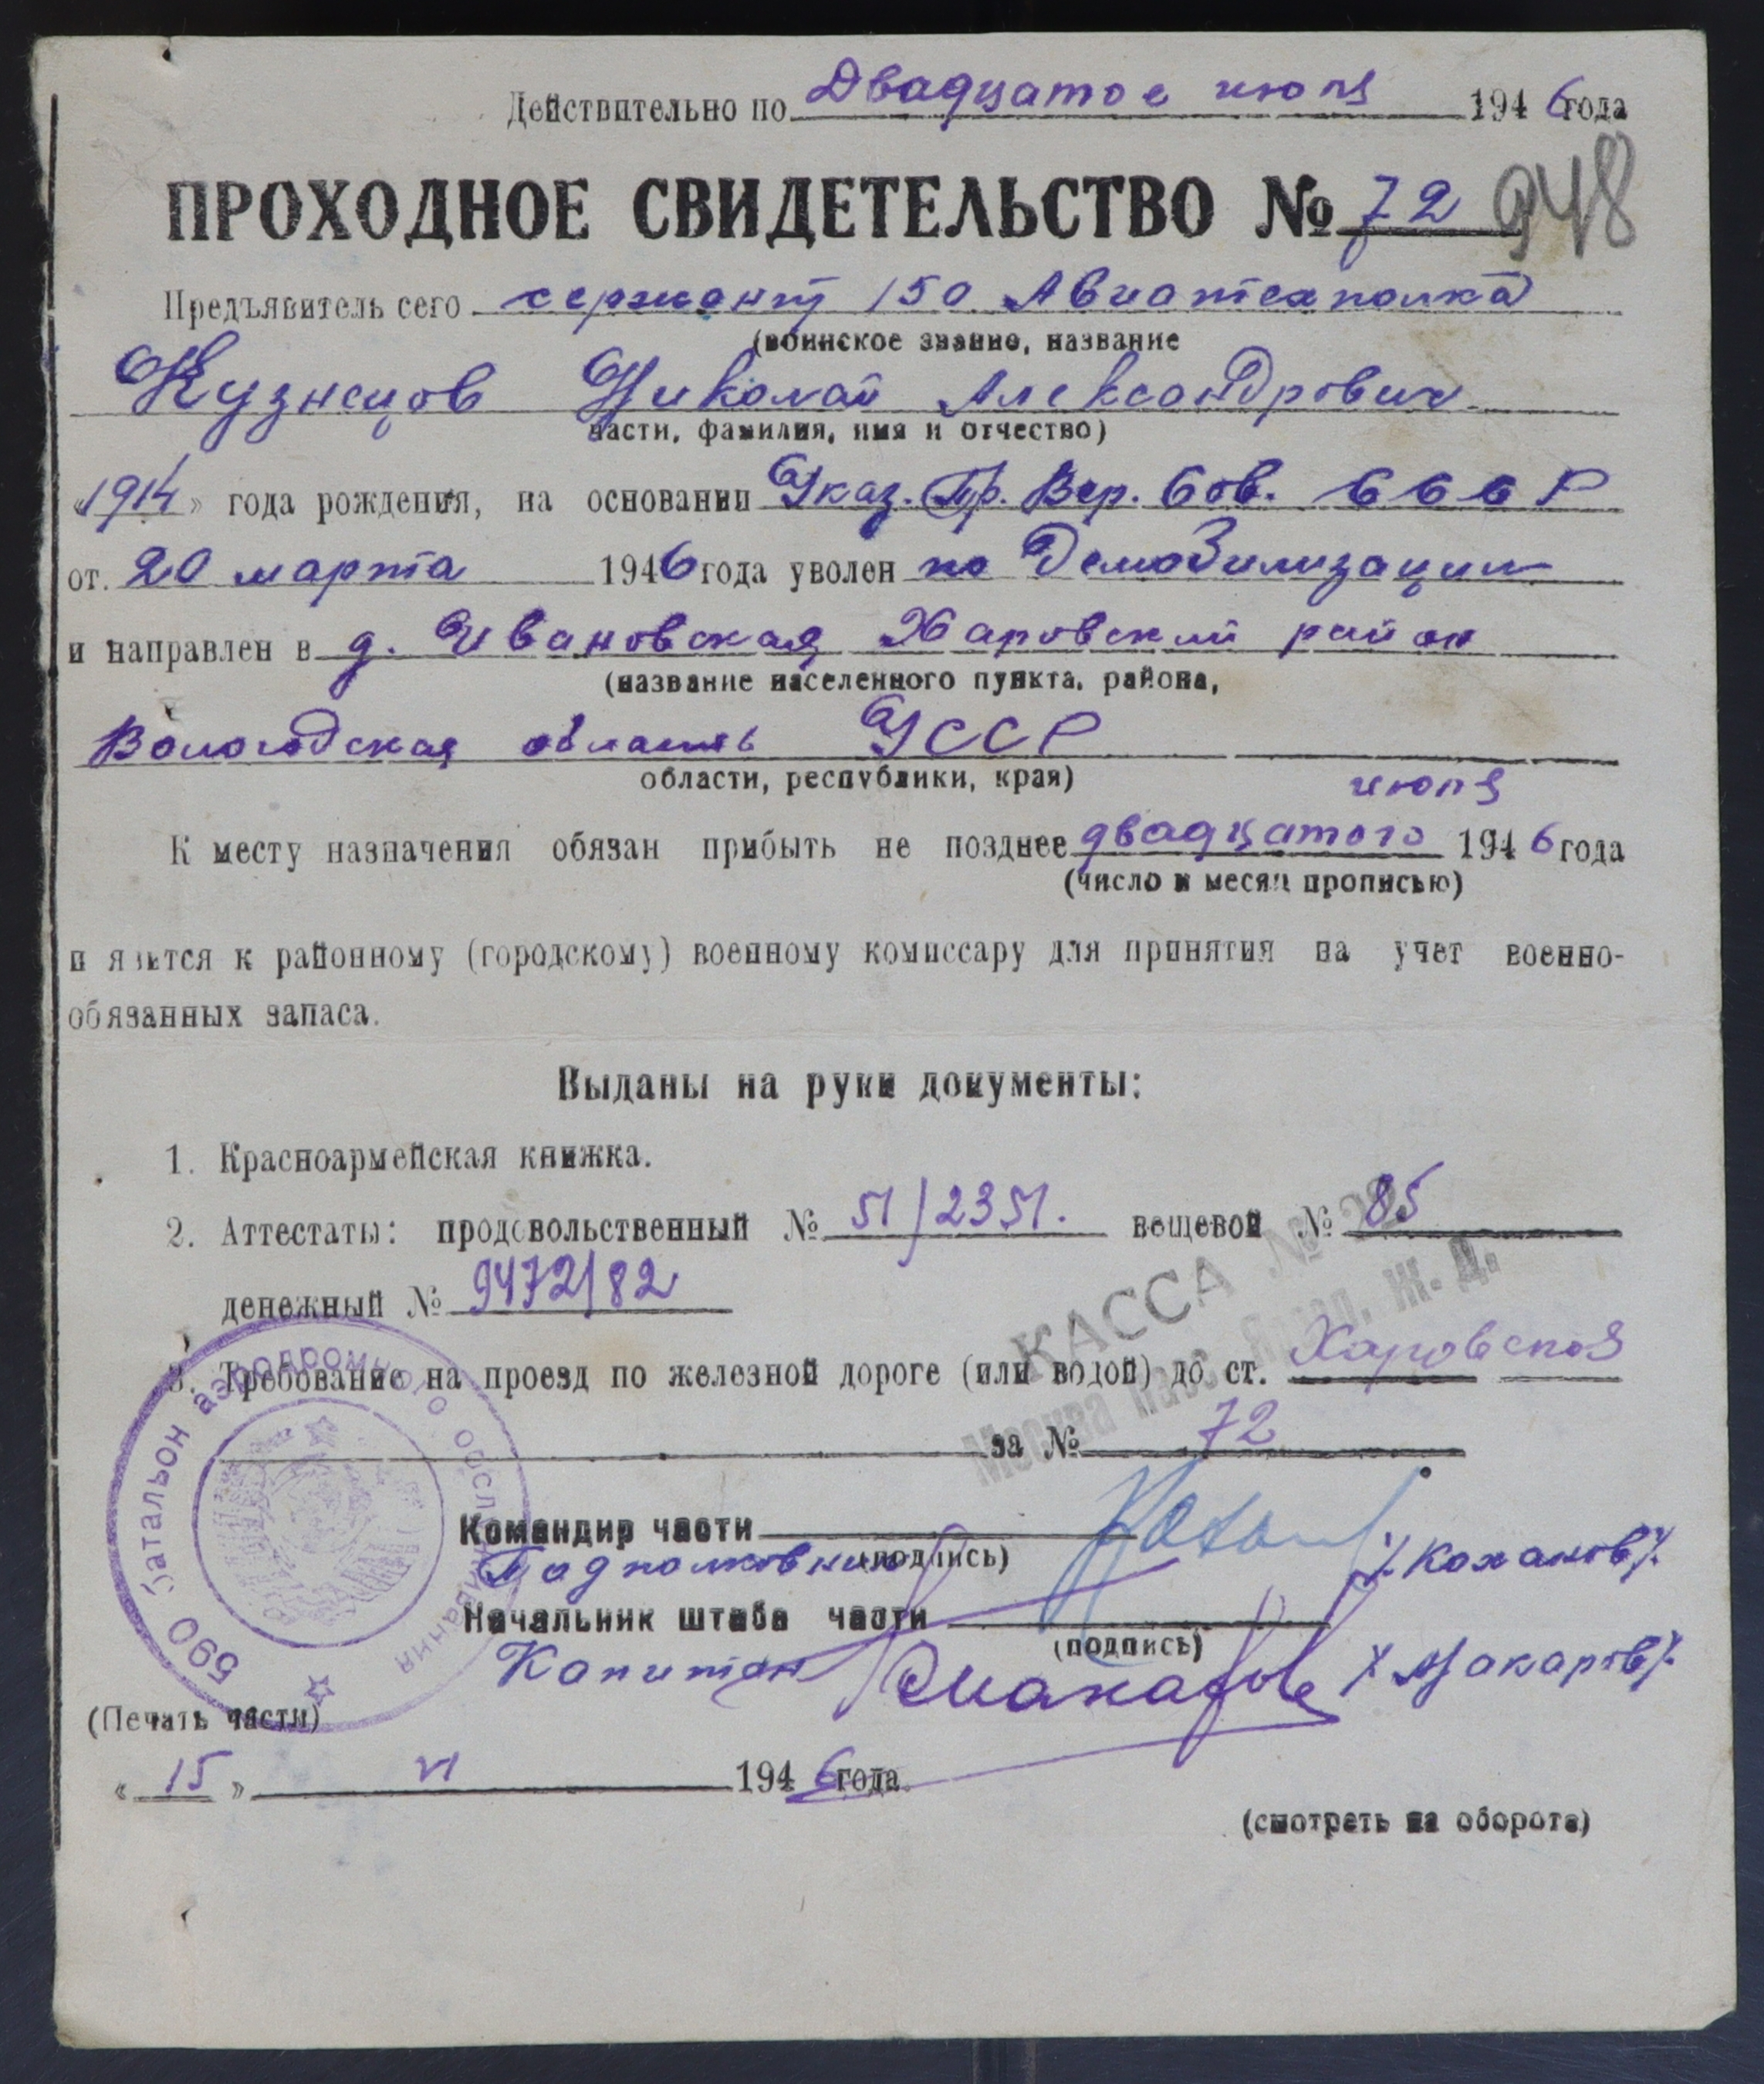 Действительно по Двадцатое июня 1946 года
ПРОХОДНОЕ СВИДЕТЕЛЬСТВО № 72 948
Предъявитель сего сержант 150 Авиатехполка
(воинское звание, название
Кузнецов Николай Александрович
части, фамилия, имя и отчество)
«1914» года рождения, на основании Указ. Пр. Вер. Сов. СССР
от. 20 марта 1946 года уволен по Демобилизации
и направлен в д. Ивановская Харовский район
(название населенного пункта, района,
Вологодская область УССР
области, республики, края)
июня
К месту назначения обязан прибыть не позднее двадцатого 1946 года
(число и месяц прописью)
и явится к районному (городскому) военному комиссару для принятия на учет военно-
обязанных запаса.
Выданы на руки документы:
1. Красноармейская книжка.
2. Аттестаты: продовольственный № 51/2351. вещевой № 85
денежный № 9472/82
КАССА № 22
Москва пасс. Яросл. Ж. Д.
3. Требование на проезд по железной дороге (или водой) до ст. Харовская
за № 72
590 батальон аэродромного обслуживания
Командир части
(подпись)
Подполковник /Коханов/.
Начальник штаба части
(подпись)
Капитан Макаров /Макаров/.
(Печать части)
«15» VI 1946 года.
(смотреть на обороте)